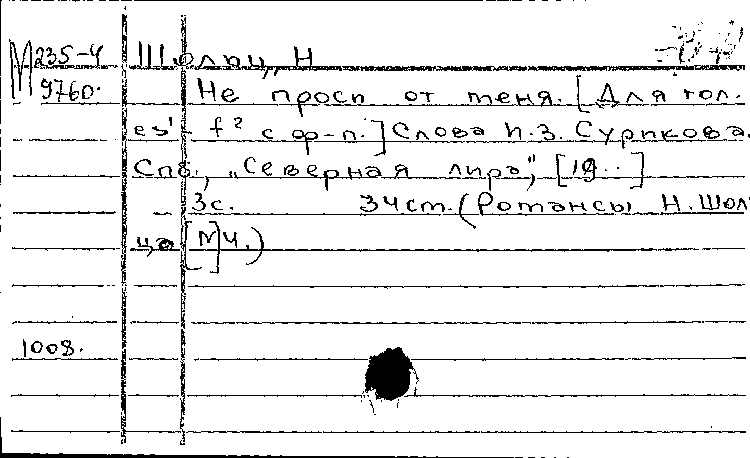 М 235-4 Шольц, Н
9760. Не проси от меня. [Для гол.
es¹ - f² с ф-п.] Слова И.З. Сурикова.
Спб., "Северная лира", [19..]
3с. 34ст. (Романсы Н. Шоль
ца [№]4.)
1008.